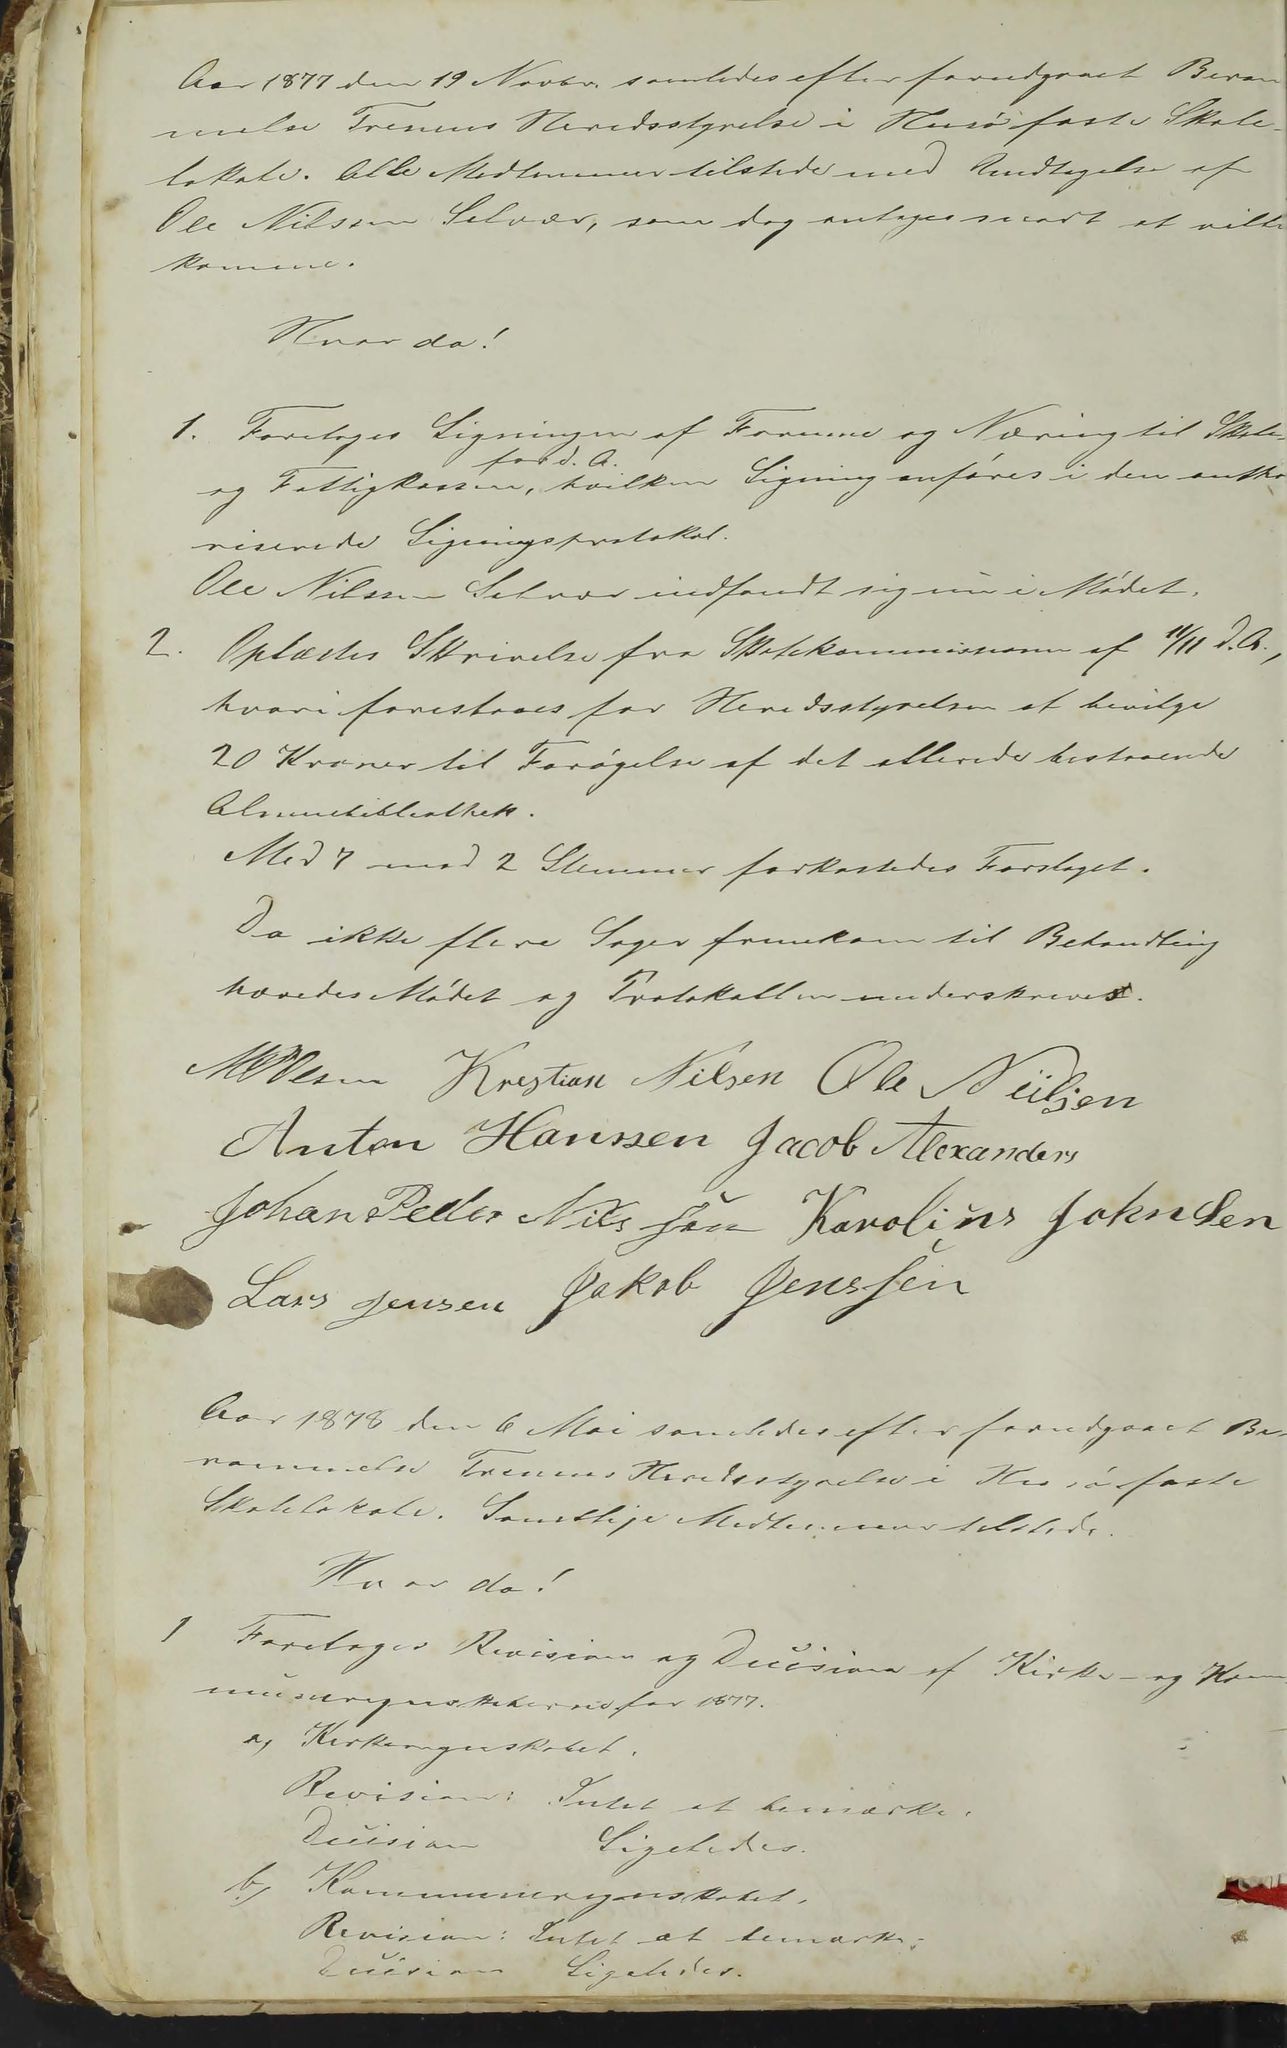 Aar 1877 den 19 Novbr. samledes efter forudgaaet Beram
melse Trenens Heredsstyrelse i Husø faste Skole-
lokale. Alle Medlemmer tilstede med Undtagelse af
Ole Nilssen Selvær, som dog antoges snart at ville
komme.
Hvor da!
1. Foretoges Ligningen af Formue og Næring til Skole-
for d. A.
og Fattigkassen, hvilken Ligning anføres i den autho
riserede Ligningsprotokol.
Ole Nilssen Selvær indfandt sig nu i Mødet.
2. Oplæstes Skrivelse fra Skolekommissionen af 11/11 d. A.,
hvori foreslaaes for Heredsstyrelsen at bevilge
20 Kroner til Forøgelse af det allerede bestaaende
Almuebibliothek.
Med 7 mod 2 Stemmer forkastedes Forslaget.
Da ikke flere Sager fremkom til Behandling
hævedes Mødet og Protokollen underskreves.
Olesen Kristian Nilsen Ole Niilsen
Anton Hanssen Jacob Alexanders
Johan Peder Nilssen Karolius Johnsen
Lars Jensen Jakob Jenssen
Aar 1878 den 6 Mai samledes efter forudgaaet Be-
rammelse Trenens Heredsstyrelse i Husø faste
Skolelokale. Samtlige Medlemmer tilstede.
Hvor da!
1 Foretoges Revision og Decision af Kirke- og Kom
muneregnskaberne for 1877.
a, Kirkeregnskabet.
Revision: Intet at bemærke.
Decision Ligeledes.
b, Kommuneregnskabet.
Revision: Intet at bemærke.
Decision Ligeledes.